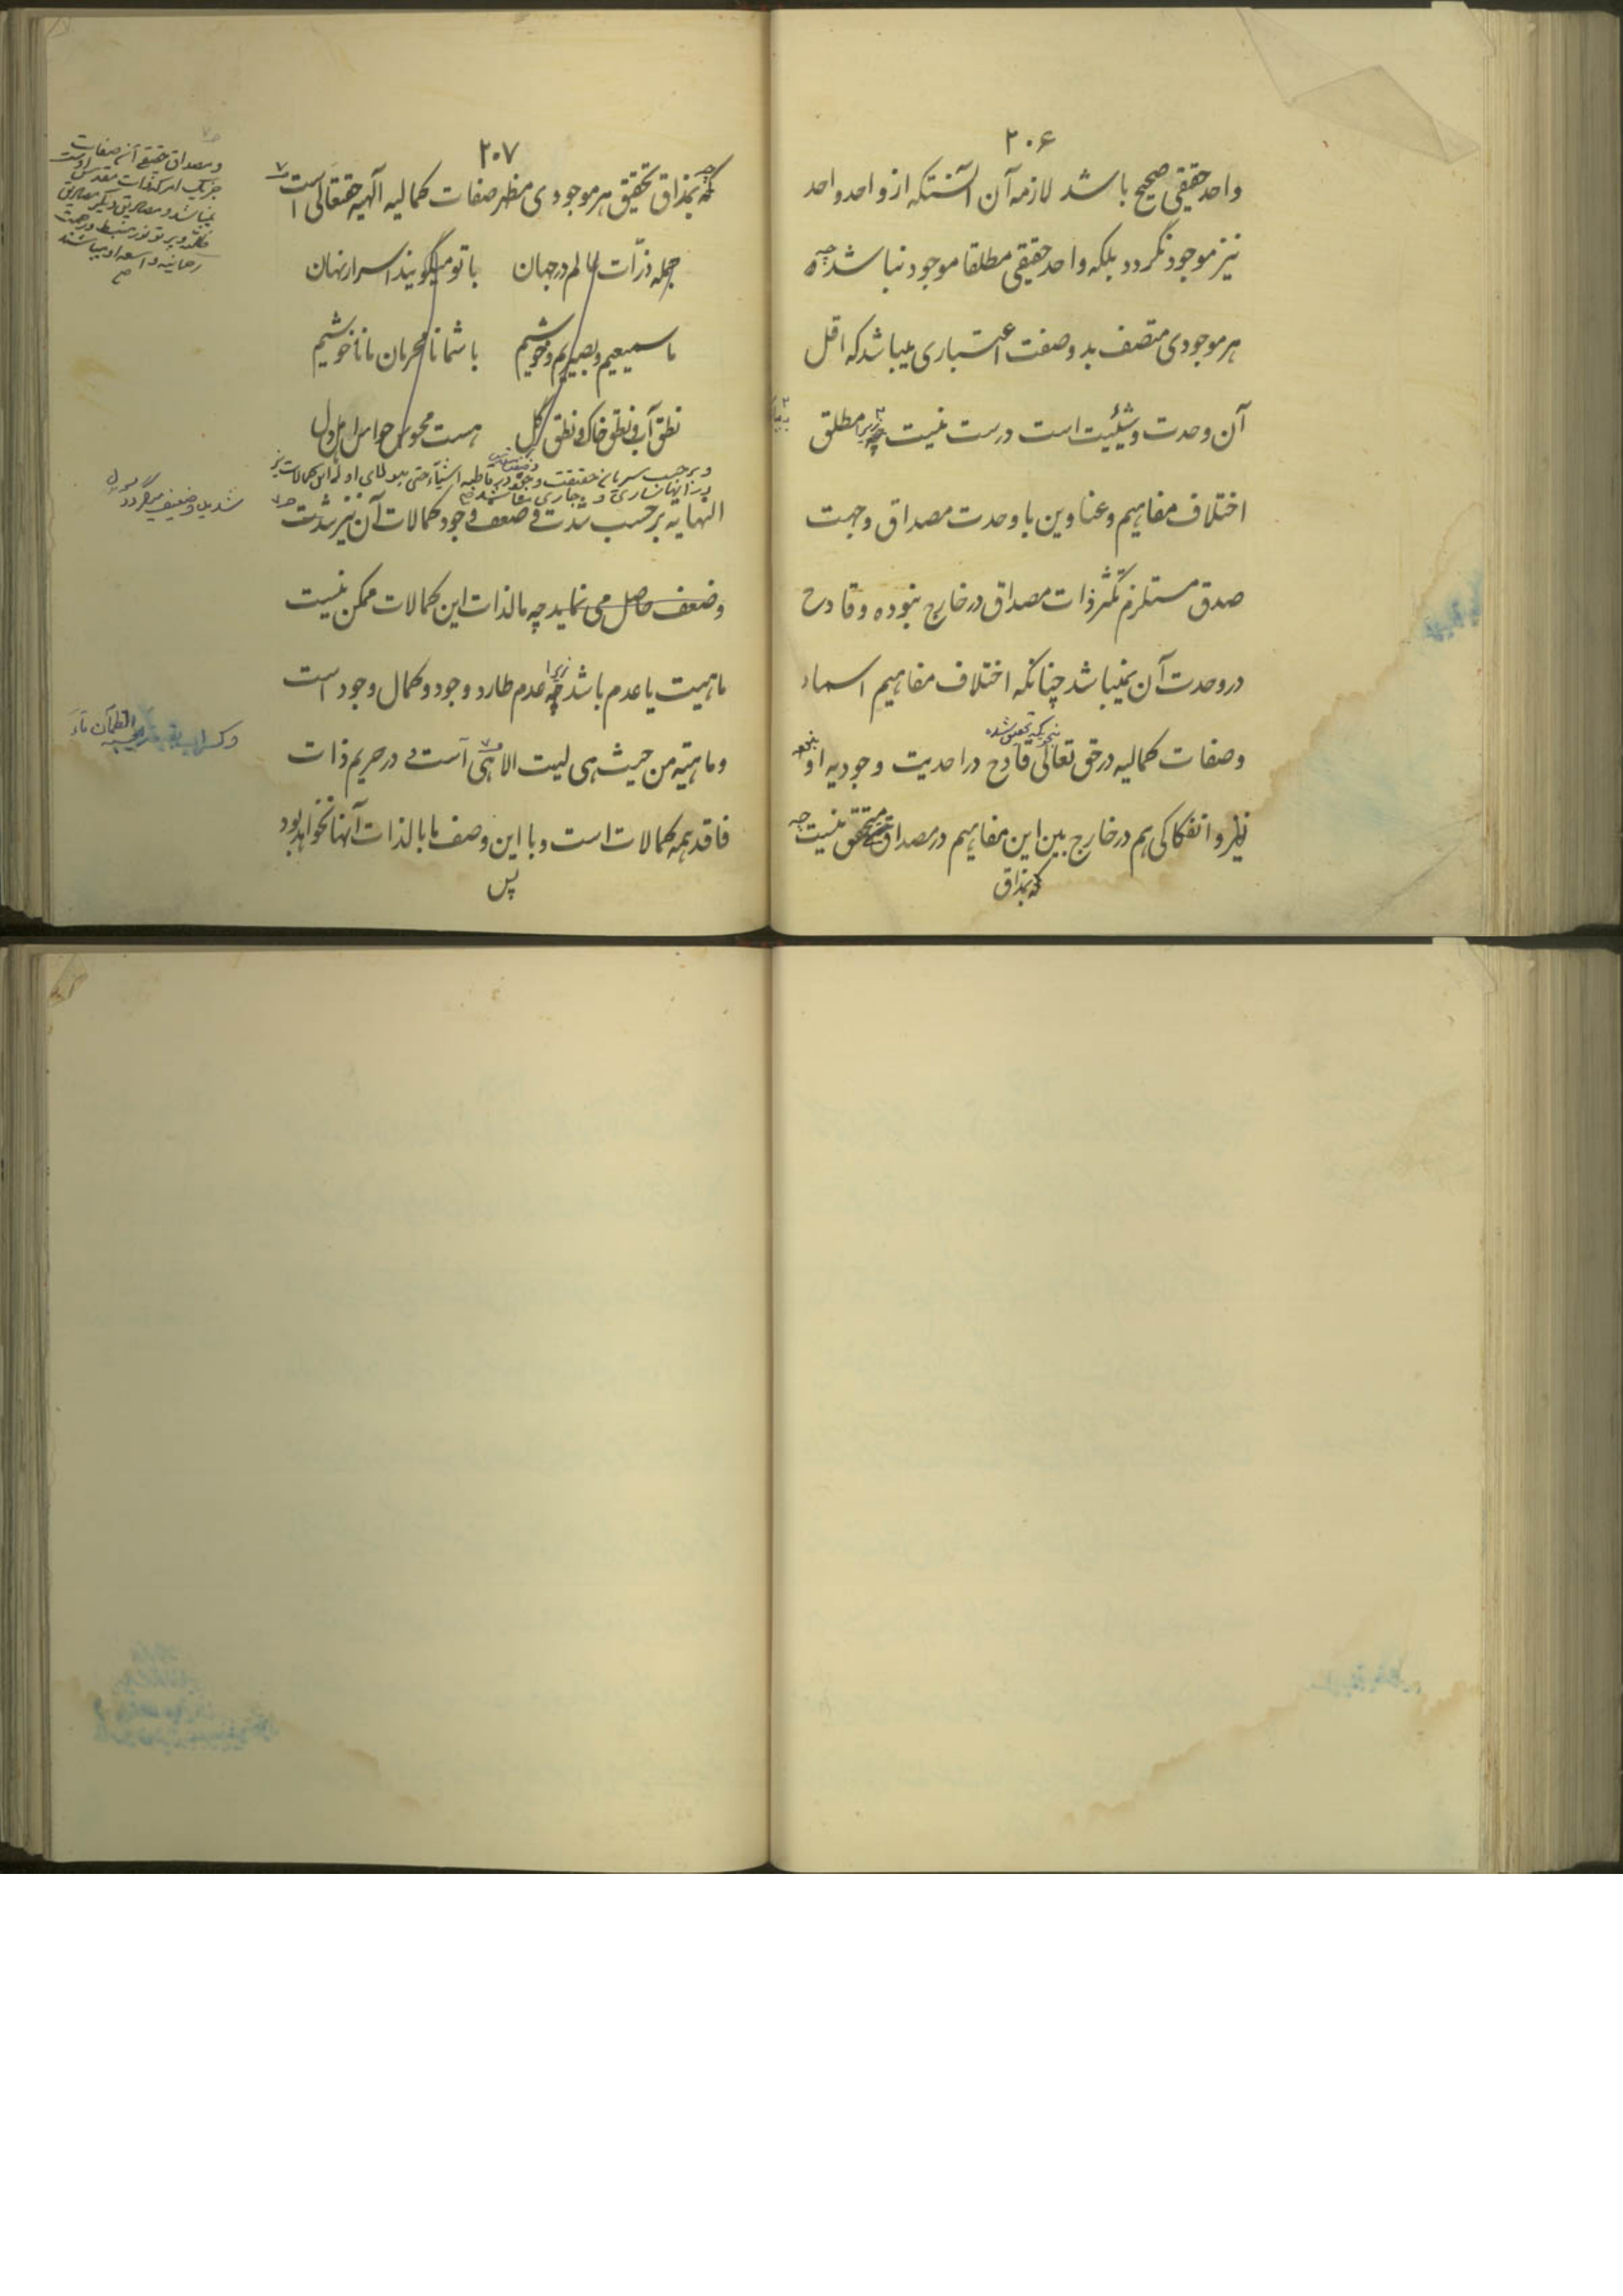 ۲۰۶
واحد حقیقی صحیح باشد لازمه آن آنستکه از واحد واحد
نیز موجود نگردد بلکه واحد حقیقی مطلقا موجود نباشد چه
هر موجودی متصف بدو صفت اعتباری میباشد که اقل
آن وحدت و شیئیت است درست نیست چه زیرا مطلق
اختلاف مفاهیم و عناوین با وحدت مصداق و جهت
صدق مستلزم تکثر ذات مصداق در خارج نبوده و قادح
در وحدت آن نمیباشد چنانکه اختلاف مفاهیم اسماء
بنحویکه تحقیق شده
و صفات کمالیه در حق تعالی قادح در احدیت وجودیه او
نیز و انفکاکی هم در خارج بین این مفاهیم در مصداق متحقق نیست چه
که بمذاق
۲۰۷
که بمذاق تحقیق هر موجودی مظهر صفات کمالیه آلهیه حقتعالی است
جمله ذرّات عالم در جهان با تو میگویند اسرار نهان
ما سمیعیم و بصیریم و خوشیم با شما نامحرمان ما ناخوشیم
نطق آب و نطق خاک و نطق گل هست محسوس حواس اهل دل
و بر حسب سریان حقیقت وجود در قاطبه اشیاء حتی هیولای اولی این کمالات نیز
در آنها ساری و جاری میباشند
النهایه بر حسب شدت و ضعف وجود کمالات آن نیز شدت
و ضعف حاصل می نماید چه مالذات این کمالات ممکن نیست
ماهیت یا عدم باشد چه زیرا عدم طارد وجود و کمال وجود است
و ماهیته من حیث هی لیست الا هی است و در حریم ذات
فاقد همه کمالات است و با این وصف ما بالذات آنها نخواهد بود
پس
و مصداق حقیقی آن صفات
جز یک امر که ذات مقدس اوست
نمیباشد و مصادیق دیگر مصادیق
رحمانیه واسعه او میباشند
شدید و ضعیف میگردد